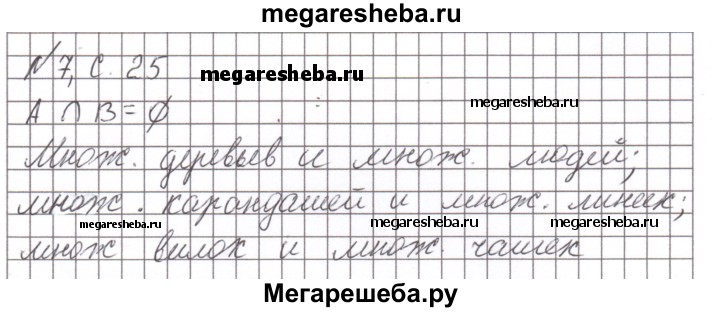 megaresheba.ru
N 7, с. 25
megaresheba.ru
megaresheba.ru
A ∩ B = ∅
Множ. деревьев и множ. людей;
множ. карандашей и множ. линеек;
megaresheba.ru
megaresheba.ru
megaresheba.ru
множ вилок и множ. чашек
Мегарешеба.ру